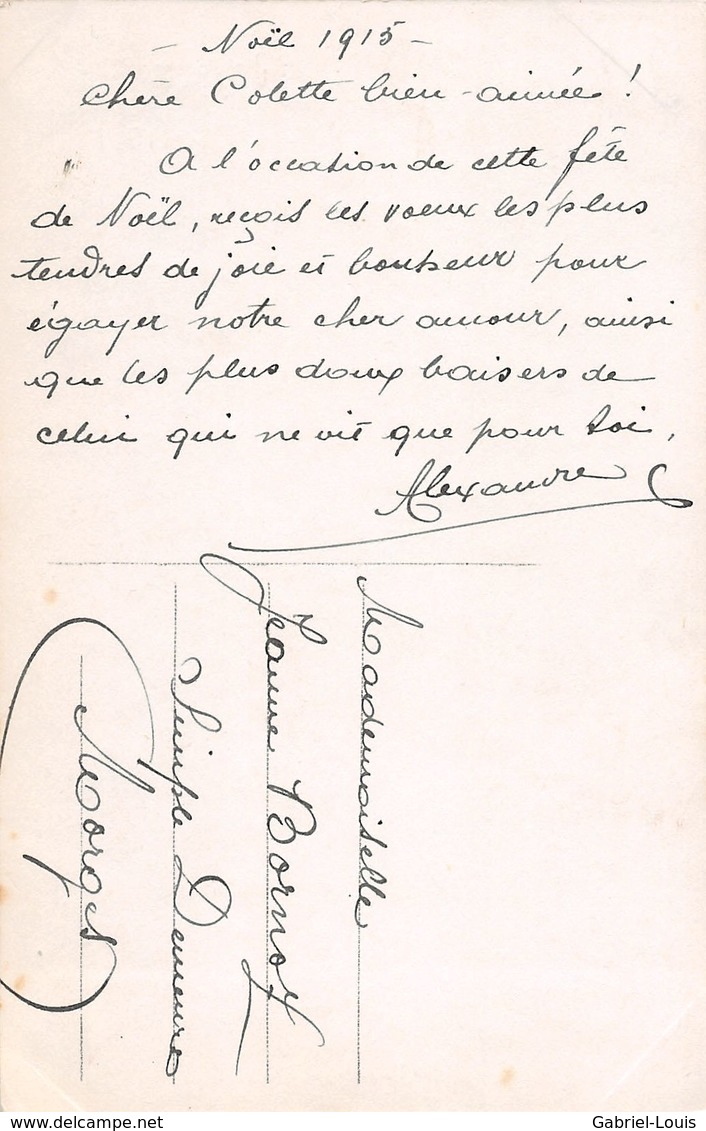 - Noël 1915 -
Chère Colette bien-aimée !
A l'occasion de cette fête
de Noël, reçois les voeux les plus
tendres de joie et bonheur pour
égayer notre cher amour, ainsi
que les plus doux baisers de
celui qui ne vit que pour toi,
Alexandre
Mademoiselle
Jeanne Bornoz
Simple Demeure
Morges
delcampe.net
Gabriel-Louis